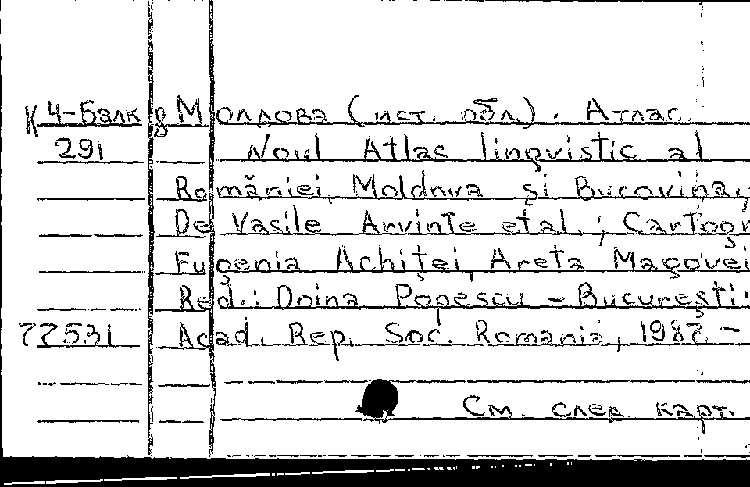 К 4-Балк 8 Молдова (ист. обл). Атлас.
291 Noul Atlas lingvistic al
României. Moldova şi Bucovina;
De Vasile Arvinte et al.; Cartogr
Eugenia Achiţei, Areta Moţovei
Red.: Doina Popescu - Bucureşti:
77531 Acad. Rep. Soc. Romania, 1987. -
См. след карт.